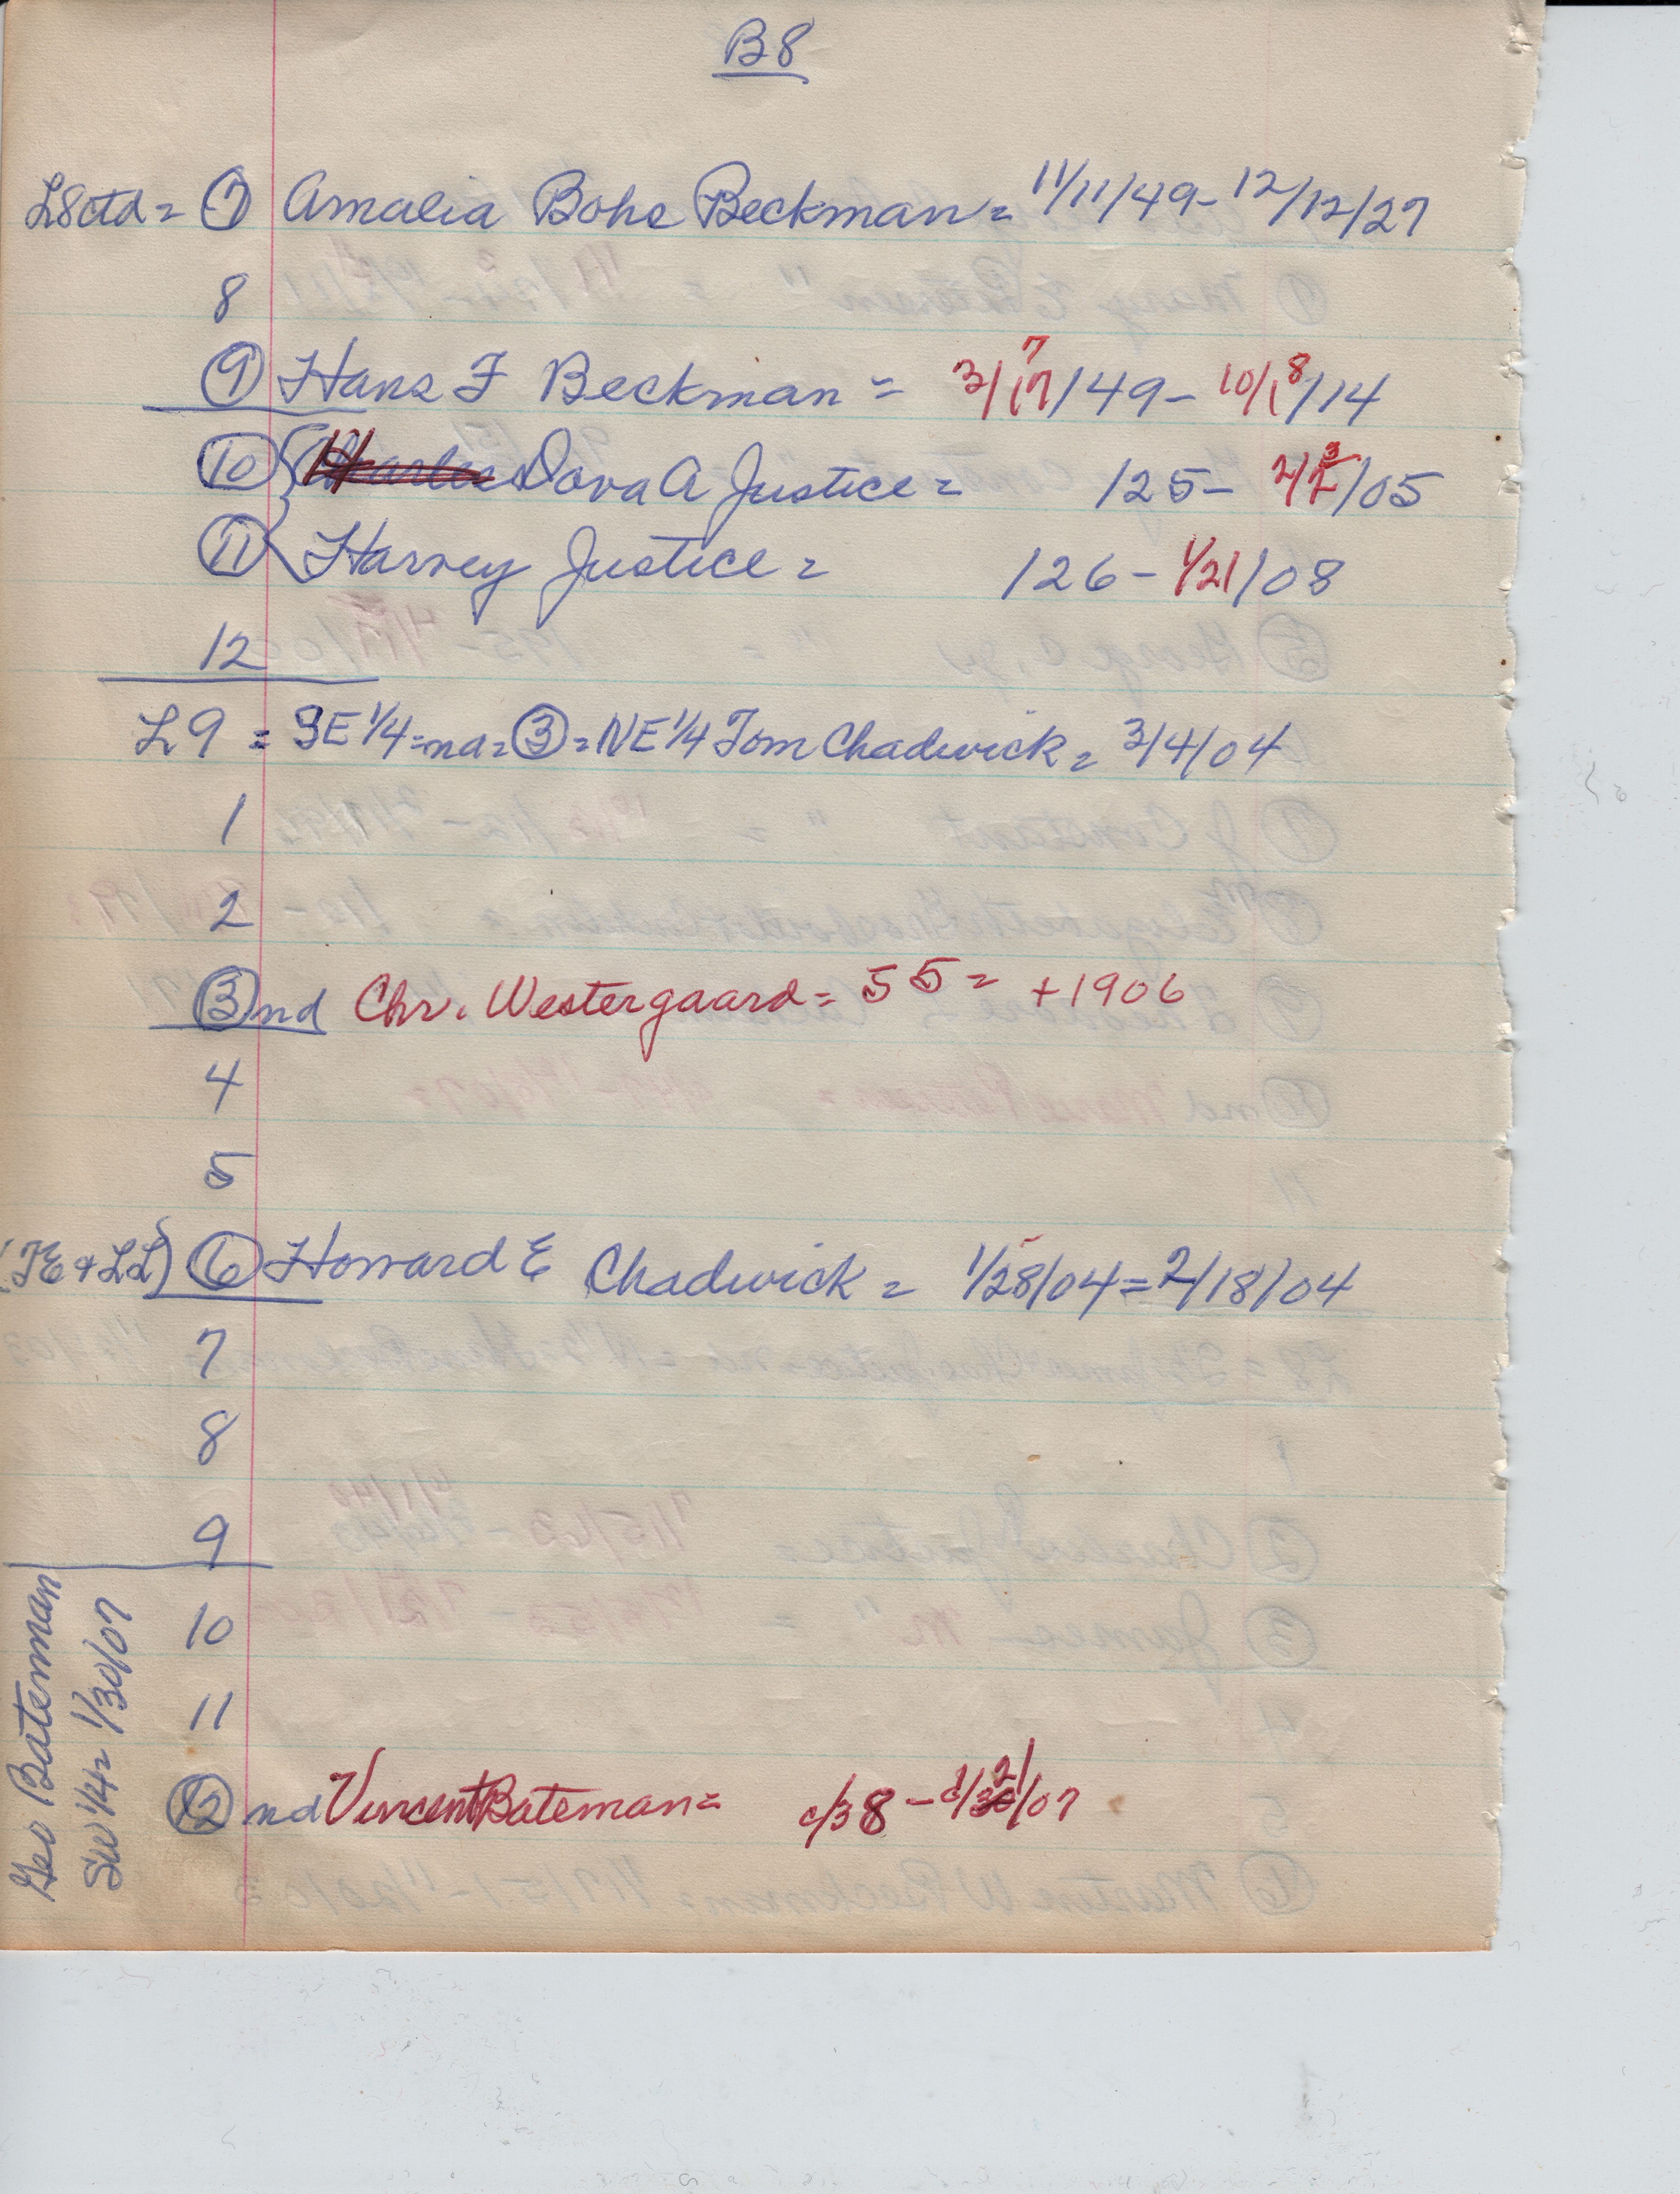 B8
L8ctd = 7 Amalia Bohe Beckman = 11/11/49 - 12/12/27
8
9 Hans F Beckman = 3/17/49 - 10/18/14
10 { Dora A Justice = /25 - 2/3/05
11 { Harvey Justice = /26 - 1/21/08
12
L9 = SE 1/4 = na = 3 = NE 1/4 Tom Chadwick = 3/4/04
1
2
3 nd Chr. Westergaard = 55 = +1906
4
5
(TE + LL) 6 Howard E Chadwick = 1/28/04 = 2/18/04
7
8
9
10
11
12 nd Vincent Bateman = c/38 - /07
Geo Bateman
SW 1/4 = 1/30/07